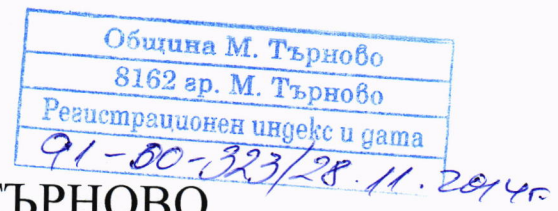 Община М. Търново
8162 гр. М. Търново
Регистрационен индекс и дата
91-00-323/28.11.2014г.
ТЪРНОВО